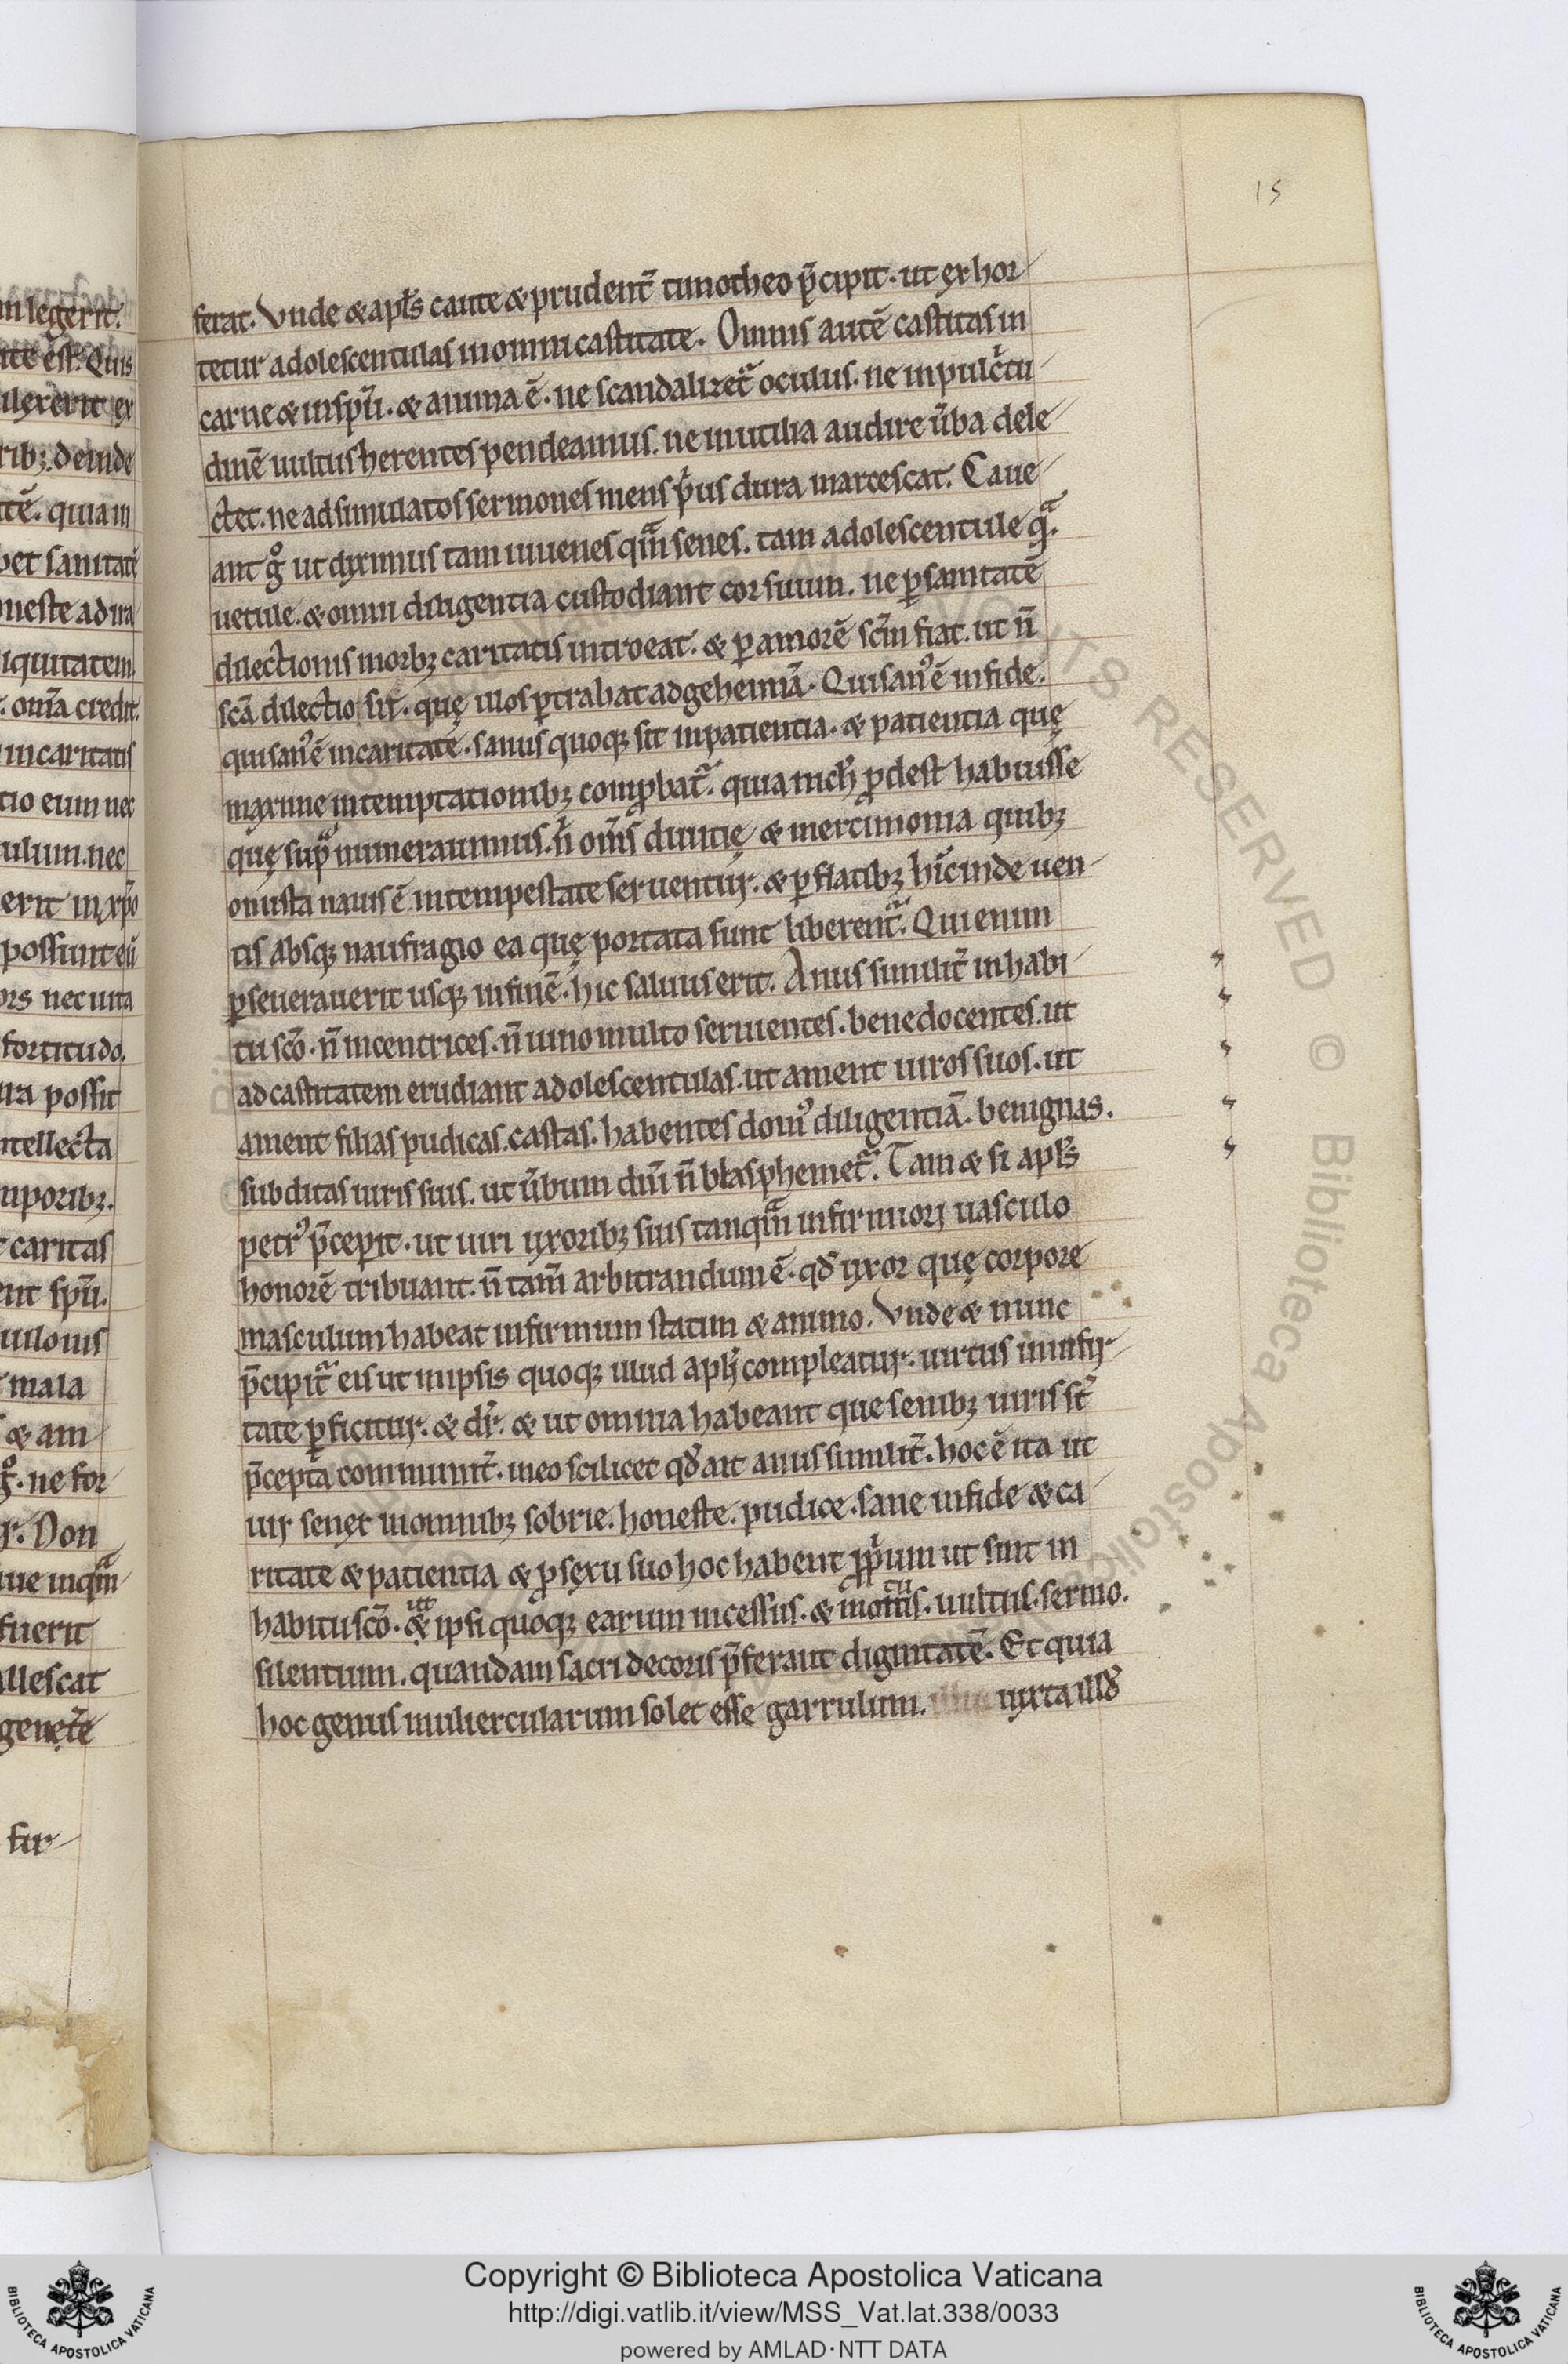 15
ferat. Vnde & apl̅s caute & prudent̅ timotheo p̅cipit. ut exhor
tetur adolescentulas in omni castitate. Omnis aute̅ castitas in
carne & in sp̅u. & anima e̅. ne scandalizet᷑ oculus. ne in pulc̅tu
dine̅ uultus herentes pendeamus. ne inutilia audire u̅ba dele
ctet. ne ad simulatos sermones mens p̅us dura marcescat. Caue
ant g̊ ut diximus tam iuuenes qua̅ senes. tam adolescentule qᷓ.
uetule. & omni diligentia custodiant cor suum. ne ꝑ sanitate̅
dilectionis morbꝫ caritatis introeat. & ꝑ amore̅ sc̅m fiat. ut n̅
sc̅a dilectio sit. quę illos ꝑtrahat ad gehenna̅. Qui sanꝰ e̅ in fide.
qui sanꝰ e̅ in caritate. sanus quoqꝫ sit in patientia. & patientia quę
maxime in temptationibꝫ comꝓbat᷑. quia nich̅ ꝓdest habuisse
quę sup̅ numerauimus. n̅ om̅s diuitię & mercimonia quibꝫ
onusta nauis e̅ in tempestate seruentur. & ꝑ flatibꝫ hi̅c inde uen
tis absqꝫ naufragio ea quę portata sunt liberent᷑. Qui enim
ꝑseuerauerit usqꝫ in fine̅. hic saluus erit. Anus similit̅ in habi
tu sc̅o. n̅ incentrices. n̅ uino multo seruientes. bene docentes. ut
ad castitatem erudiant adolescentulas. ut ament uiros suos. ut
ament filias pudicas. castas. habentes domꝰ diligentia̅. benignas.
subditas uiris suis. ut u̅bum dn̅i n̅ blasphemet᷑. Tam & si apl̅s
petrꝰ p̅cepit. ut uiri uxoribꝫ suis tanqua̅ infirmiori uasculo
honore̅ tribuant. n̅ tam̅ arbitrandum e̅. qd̅ uxor quę corpore
masculum habeat infirmum statim & animo. Vnde & nunc
p̅cipit᷑ eis ut in ipsis quoqꝫ illud apl̅i compleatur. uirtus in infir
tate ꝑficitur. & dr̅. & ut omnia habeant que senibꝫ uiris st̅
p̅cepta communit̅. in eo scilicet qd̅ ait anus similit̅. hoc e̅ ita ut
uir senex in omnibꝫ sobrie. honeste. pudice. sane in fide & ca
ritate & patientia & ꝓ sexu suo hoc habent ꝓp̅um ut sint in
ut                                tu
habitu sc̅o. & ipsi quoqꝫ earum incessus. & motus. uultus. sermo.
silentium. quandam sacri decoris p̅ferant dignitate̅. Et quia
hoc genus muliercularum solet esse garrulum. iuxta illd̅
m legerit.
ite est. Quis
ilexerit ex
ribꝫ. deinde
te̅. quia in
bet sanitate̅
neste ad ira
iquitatem.
. om̅ia credit.
in caritatis
tio eum nec
ulum. nec
erit in xp̅o
possunt eu̅
ors nec uita
fortitudo.
ura possit
ntellecta
mporibꝫ.
caritas
nt sp̅u.
mala
& am
g̊. ne for
r. Non
ue inqua̅
fuerit
allescat
fir
Copyright © Biblioteca Apostolica Vaticana
http://digi.vatlib.it/view/MSS_Vat.lat.338/0033
powered by AMLAD · NTT DATA
BIBLIOTECA APOSTOLICA VATICANA
BIBLIOTECA APOSTOLICA VATICANA